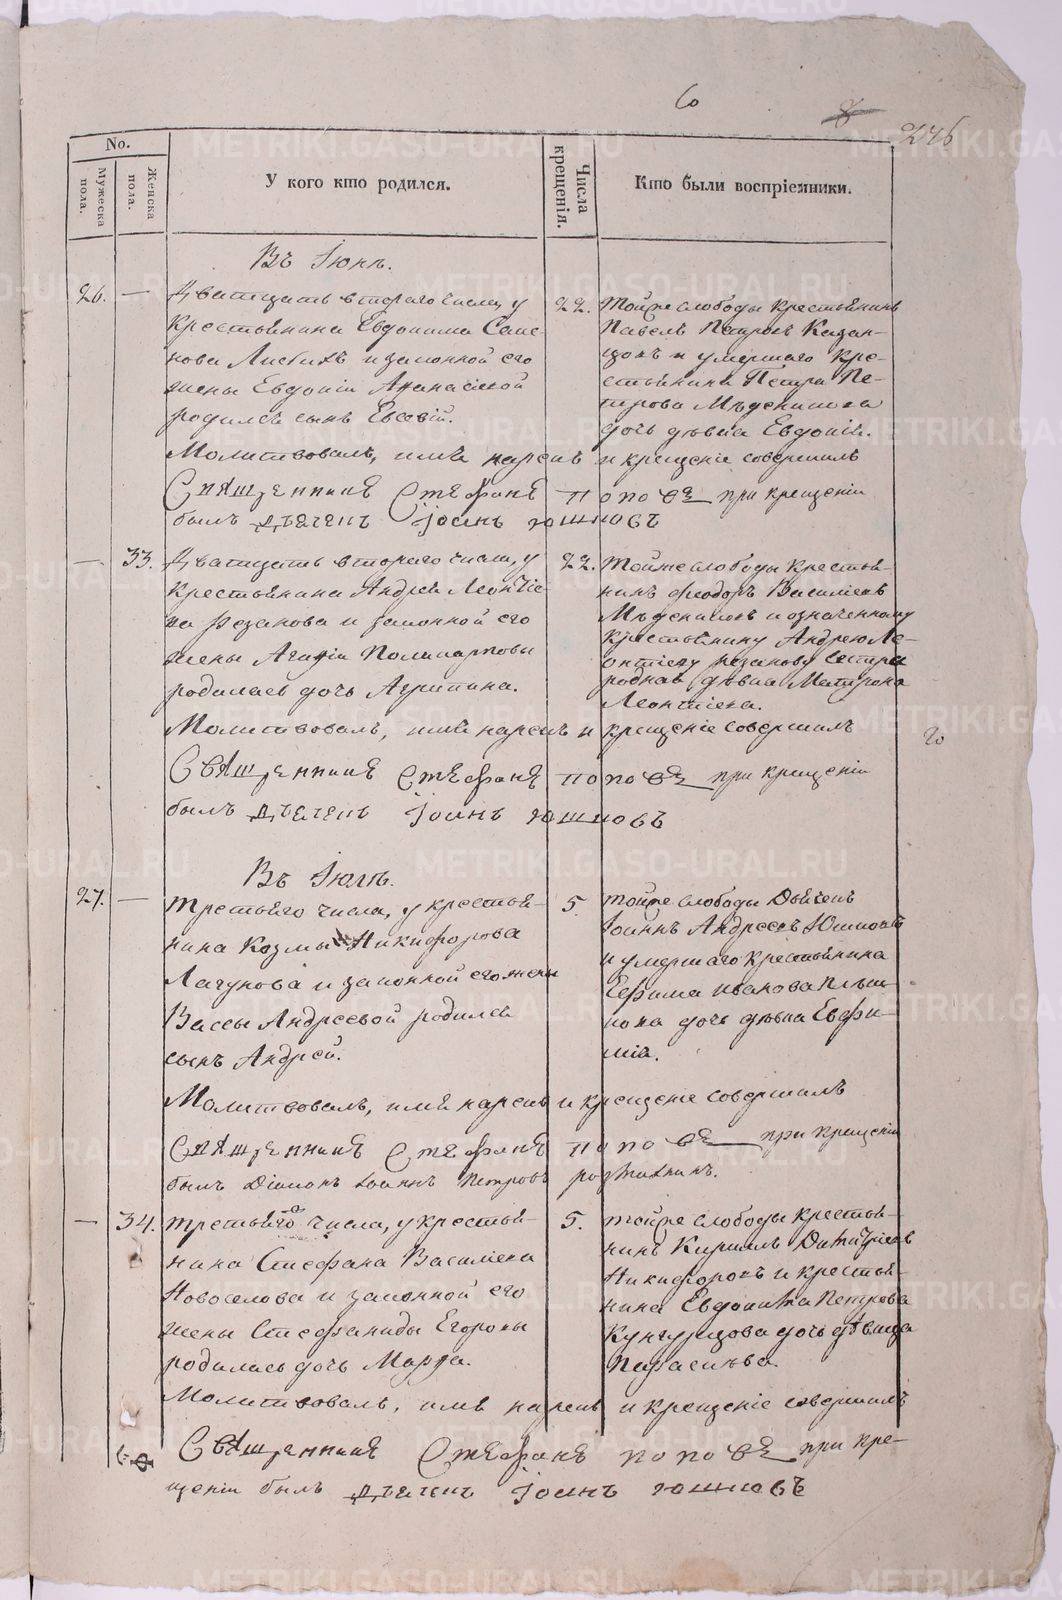 6
246
No.
Мужеска пола.
Женска пола.
У кого кто родился.
Числа крещенія.
Кто были воспріемники.
Въ Іюнѣ.
26. — Дватцать втораго числа, у
крестьянина Евдокима Семе-
нова и законной его
жены Евдокіи Афанасіевой
родился сынъ Евсевій.
22. Тойже слободы крестьянинъ
Павелъ Казан-
цовъ и умершаго кре-
стьянина Петра Пе-
трова Мѣдникова
дочь дѣвка Евдокія.
Молитвовалъ, имя нарекъ и крещеніе совершилъ
Священникъ Стефанъ Поповъ при крещеніи
былъ Дьячекъ Іоаннъ Юшковъ
— 33. Дватцать втораго числа, у
крестьянина Андрея Леонтіе-
ва Резанова и законной его
жены Агафіи Поликарповы
родилась дочь Агрипина.
22. Тойже слободы крестья-
нинъ Феодоръ Василіевъ
Мѣдниковъ и означенному
крестьянину Андрею Ле-
онтіеву Резанову сестра
родная дѣвка Матрона
Леонтіева.
Молитвовалъ, имя нарекъ и крещеніе совершилъ
Священникъ Стефанъ Поповъ при крещеніи
былъ Дьячекъ Іоаннъ Юшковъ
Въ Іюлѣ.
27. — Третьяго числа, у крестья-
нина Козмы Никифорова
Лагунова и законной его жены
Вассы Андреевой родился
сынъ Андрей.
5. Тойже слободы Дьячекъ
Іоаннъ Андреевъ Юшковъ
и умершаго крестьянина
Ефима Иванова
дочь дѣвка Евфи-
мія.
Молитвовалъ, имя нарекъ и крещеніе совершилъ
Священникъ Стефанъ Поповъ при крещеніи
былъ Діаконъ Іоаннъ Петровъ
— 34. Третьяго числа, у крестья-
нина Стефана Василіева
Новоселова и законной его
жены Стефаниды Егоровы
родилась дочь Марфа.
5. Тойже слободы крестья-
нинъ Кириллъ Димитріевъ
Никифоровъ и крестья-
нина Евдокима Петрова
Кунгурцова дочь дѣвица
Параскева.
Молитвовалъ, имя нарекъ и крещеніе совершилъ
Священникъ Стефанъ Поповъ при кре-
щеніи былъ Дьячекъ Іоаннъ Юшковъ
METRIKI.GASO-URAL.RU